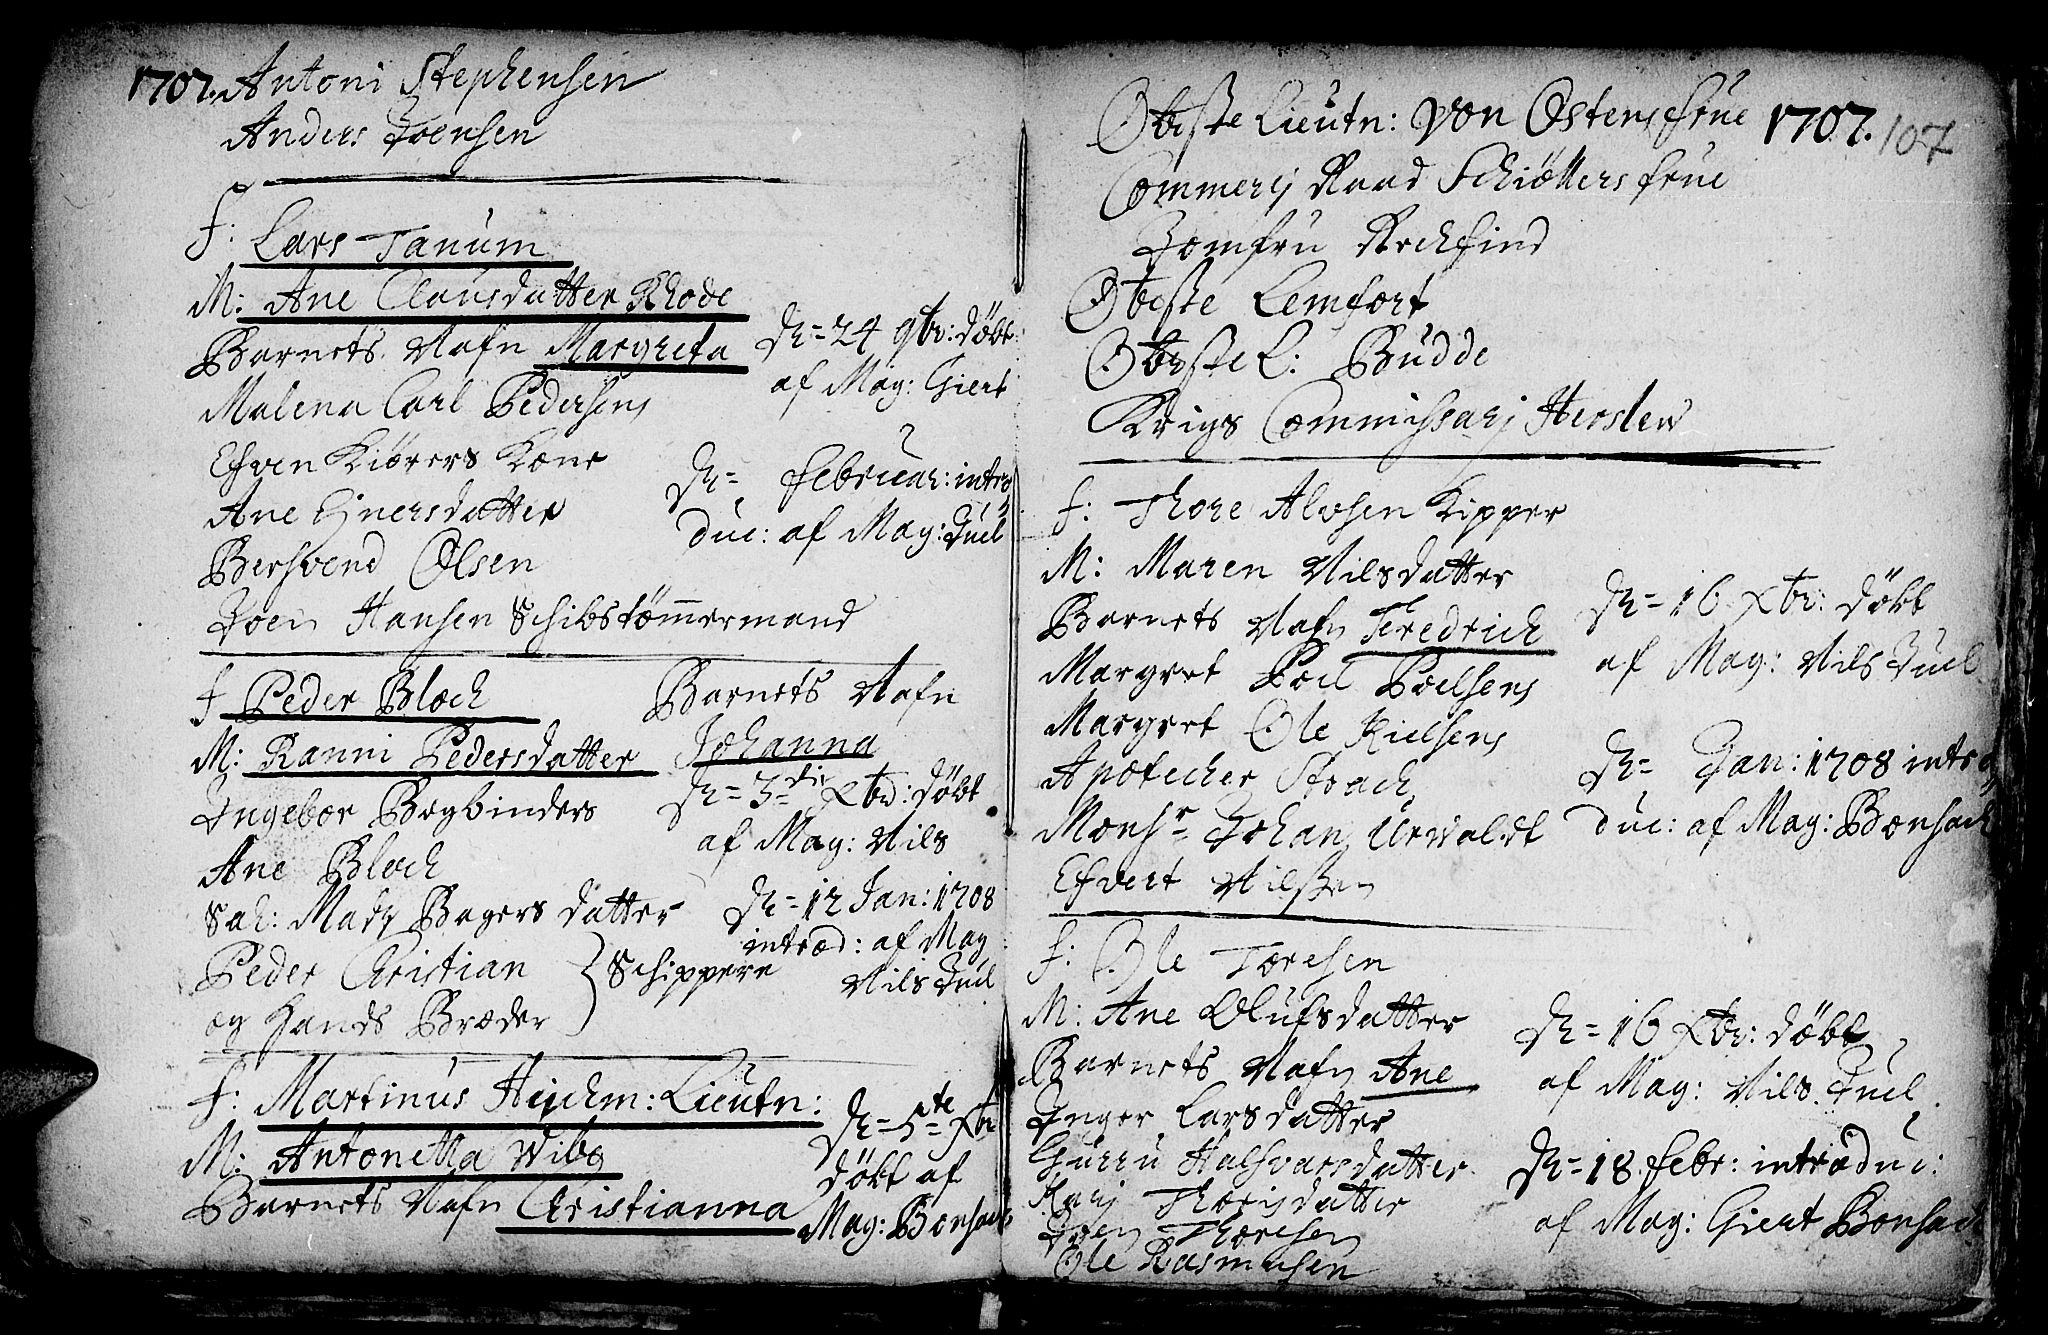 1707. Antoni Stephensen
Anders Joensen
F: Lars Tanum
M: Ane Clausdatter Rhode
Barnets Nafn Margreta
Dn= 24 9br: døbt
af Mag: Giert
Malena Carl Pedersens
Efven Kiørers Kone
Ane Ejnersdatter
Bersvend Olsen
Joen Hansen Schibstømmermand
Dn= Februar: intro
duc: af Mag: Juel
F Peder Bloch
M: Ranni Pedersdatter
Ingebor Bogbinders
Ane Bloch
Sal: Mads Bagers datter
Peder Christian
og Hands Broder } Schippere
Barnets Nafn
Johanna
Dn= 3die Xbr: døbt
af Mag: Nils
Dn= 12 Jan: 1708
introd: af Mag
Nils Juel
F: Martinus Hejchm: Lieutn:
M: Antonetta Wibe
Barnets Nafn Christianna
Dn= 5te Xbr
døbt af
Mag: Bonsach
Obeste Lieutn: von Ostens Frue 1707. 107
Commerej Raad Schiøllers Frue
Jomfru
Obeste Lemfort
Obeste L: Budde
Krigs Commissarj Herslew
F: Thore Alvsen Kipper
M: Maren Nilsdatter
Barnets Nafn Fredrich
Margret Poel Poelsens
Margret Ole Kielsens
Apotecher Strach
Monsr Johan Urvaldt
Efvert Nilssen
Dn= 16 Xbr: døbt
af Mag: Nils Juel
Dn= Jan: 1708 intro
duc: af Mag: Bonsach
F: Ole Toresen
M: Ane Olufsdatter
Barnets Nafn Ane
Inger Larsdatter
Gurru Halfvarsdatter
Marj Thorisdatter
Joen Thoresen
Ole Rasmusen
Dn= 16 Xbr: døbt
af Mag: Nils Juel
Dn= 18 Febr: introduc:
af Mag: Giert Bonsach